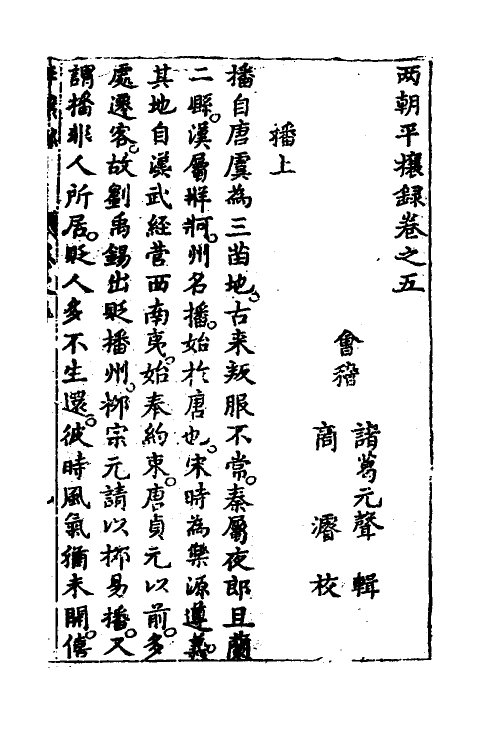 两朝平攘録卷之五
諸葛元聲　輯
會稽
商　濬　校
播上
播自唐虞為三苗地古来叛服不常秦屬夜郎且蘭
二縣漢屬牂牁州名播始於唐也宋時為樂源遵義
其地自漢武經营西南夷始奉約束唐貞元以前多
處遷客故劉禹錫出貶播州栁宗元請以栁易播又
謂播非人所居貶人多不生還彼時風氣猶未開僖